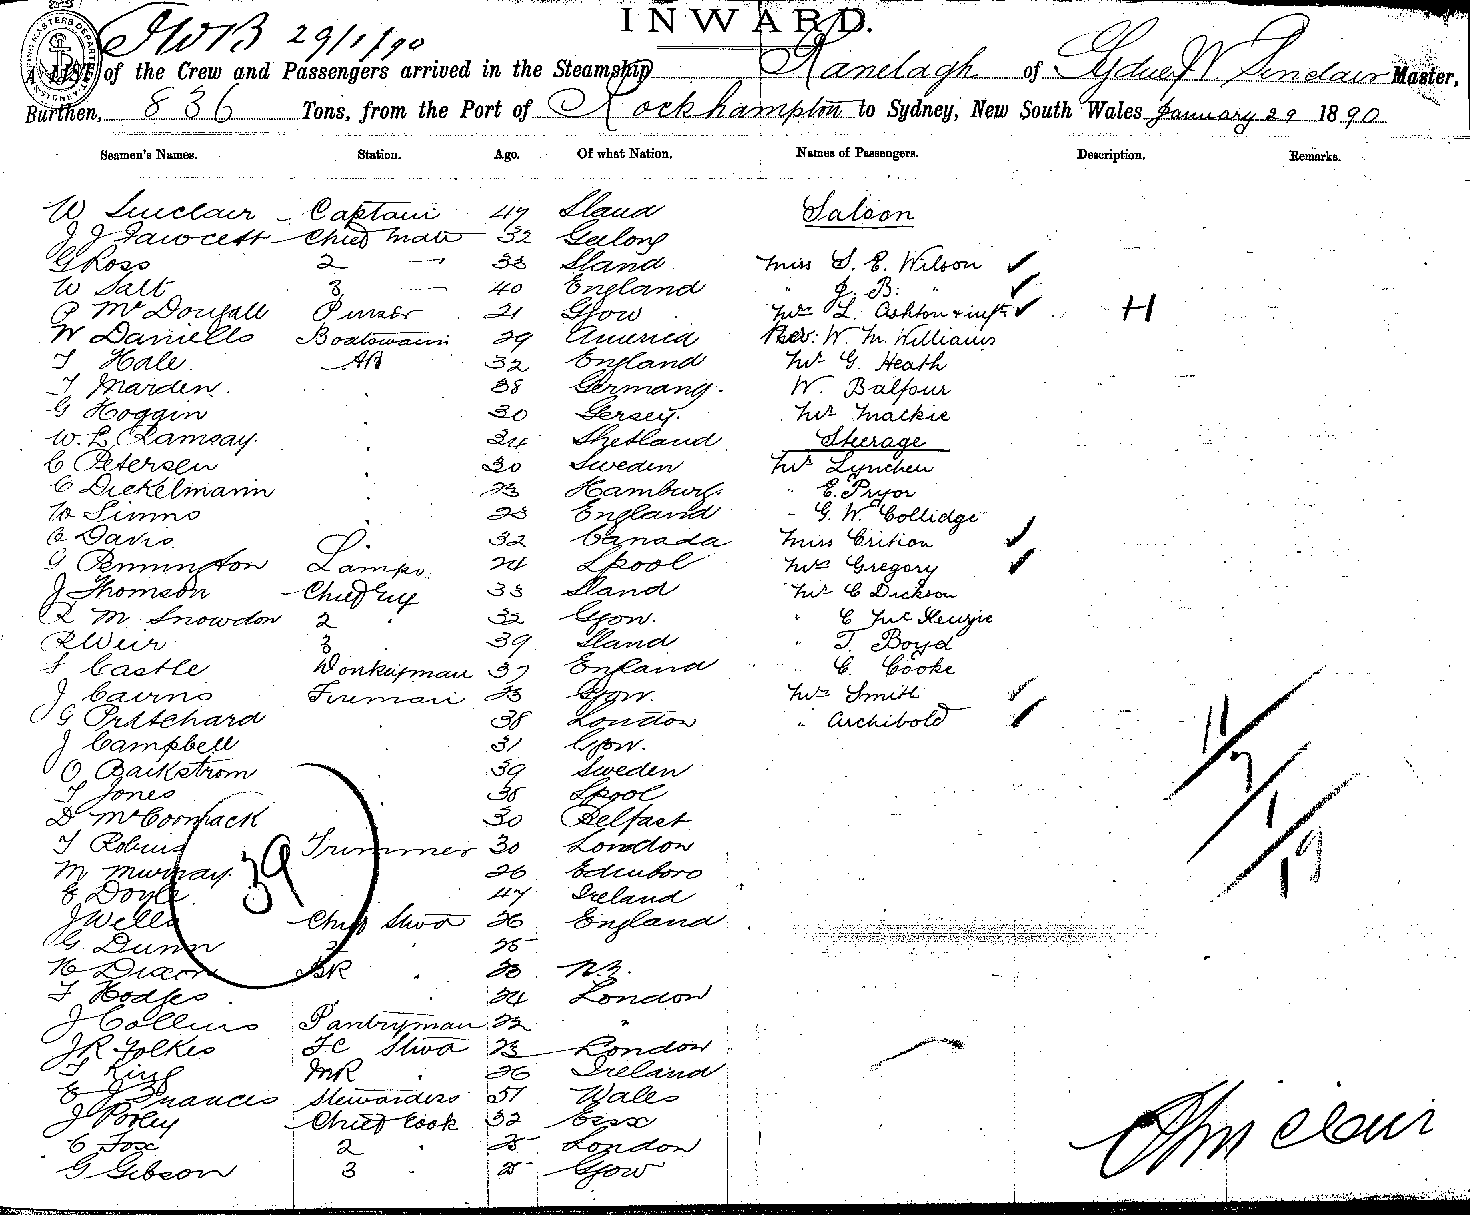 INWARD.
29/1/90
A LIST of the Crew and Passengers arrived in the Steamship Ranelagh of Sydney W Sinclair Master,
Burthen, 836 Tons, from the Port of Rockhampton to Sydney, New South Wales January 29 1890
Seamen's Names. Station. Age. Of what Nation. Names of Passengers. Description. Remarks.
W Sinclair Captain 47 Sland Saloon
J J Fawcett Chief Mate 32 Geelong
G Ross 2 33 Sland Miss S. E. Wilson
W Salt 3 40 England " J. B. "
P McDougall Purser 21 Gow Mrs L. Ashton & inft H
W Daniells Boatswain 29 America Rev: W. M. Williams
T Hale AB 32 England Mr G. Heath
T Marden 38 Germany. W. Balfour
G Hoggin 30 Jersey. Mr Mackie
W. L Ramsay 24 Shetland Steerage
C Petersen 30 Sweden Mr Lynchen
C Dickelmann 23 Hamburg. " E. Pryor
W Simns 23 England " G. W. Collidge
C Davis 32 Canada Miss Crition
G Pennington Lamps 24 Lpool Mrs Gregory
J Thomson Chief Eng 33 Sland Mr C Dickson
R M Snowdon 2 32 Gow. " C McKenzie
R Weir 3 39 Sland " T. Boyd
S Castle Donkeyman 37 England " C. Cooke
J Cairns Fireman 23 Gow. Mrs Smith
G Pritchard 38 London " Archibold
J Campbell 31 Gow.
O Backstrom 39 Sweden
T Jones 38 Lpool
D McCormack 30 Belfast
T Robins Trimmer 30 London
M Murray 26 Edinboro
E Doyle 47 Ireland
39
J Wells Chief Stwd 26 England
G Dunn 2 25
H Dixon BR 23 N.Z.
T Hodges 24 London
J Collins Pantryman 22 "
J R Folkes FC Stwd 23 London
T King MR 26 Ireland
E J Frances Stewardess 51 Wales
J Pooley Chief Cook 32 Essx
C Fox 2 25 London
G Gibson 3 25 Gow
11/7/1/19
Sinclair